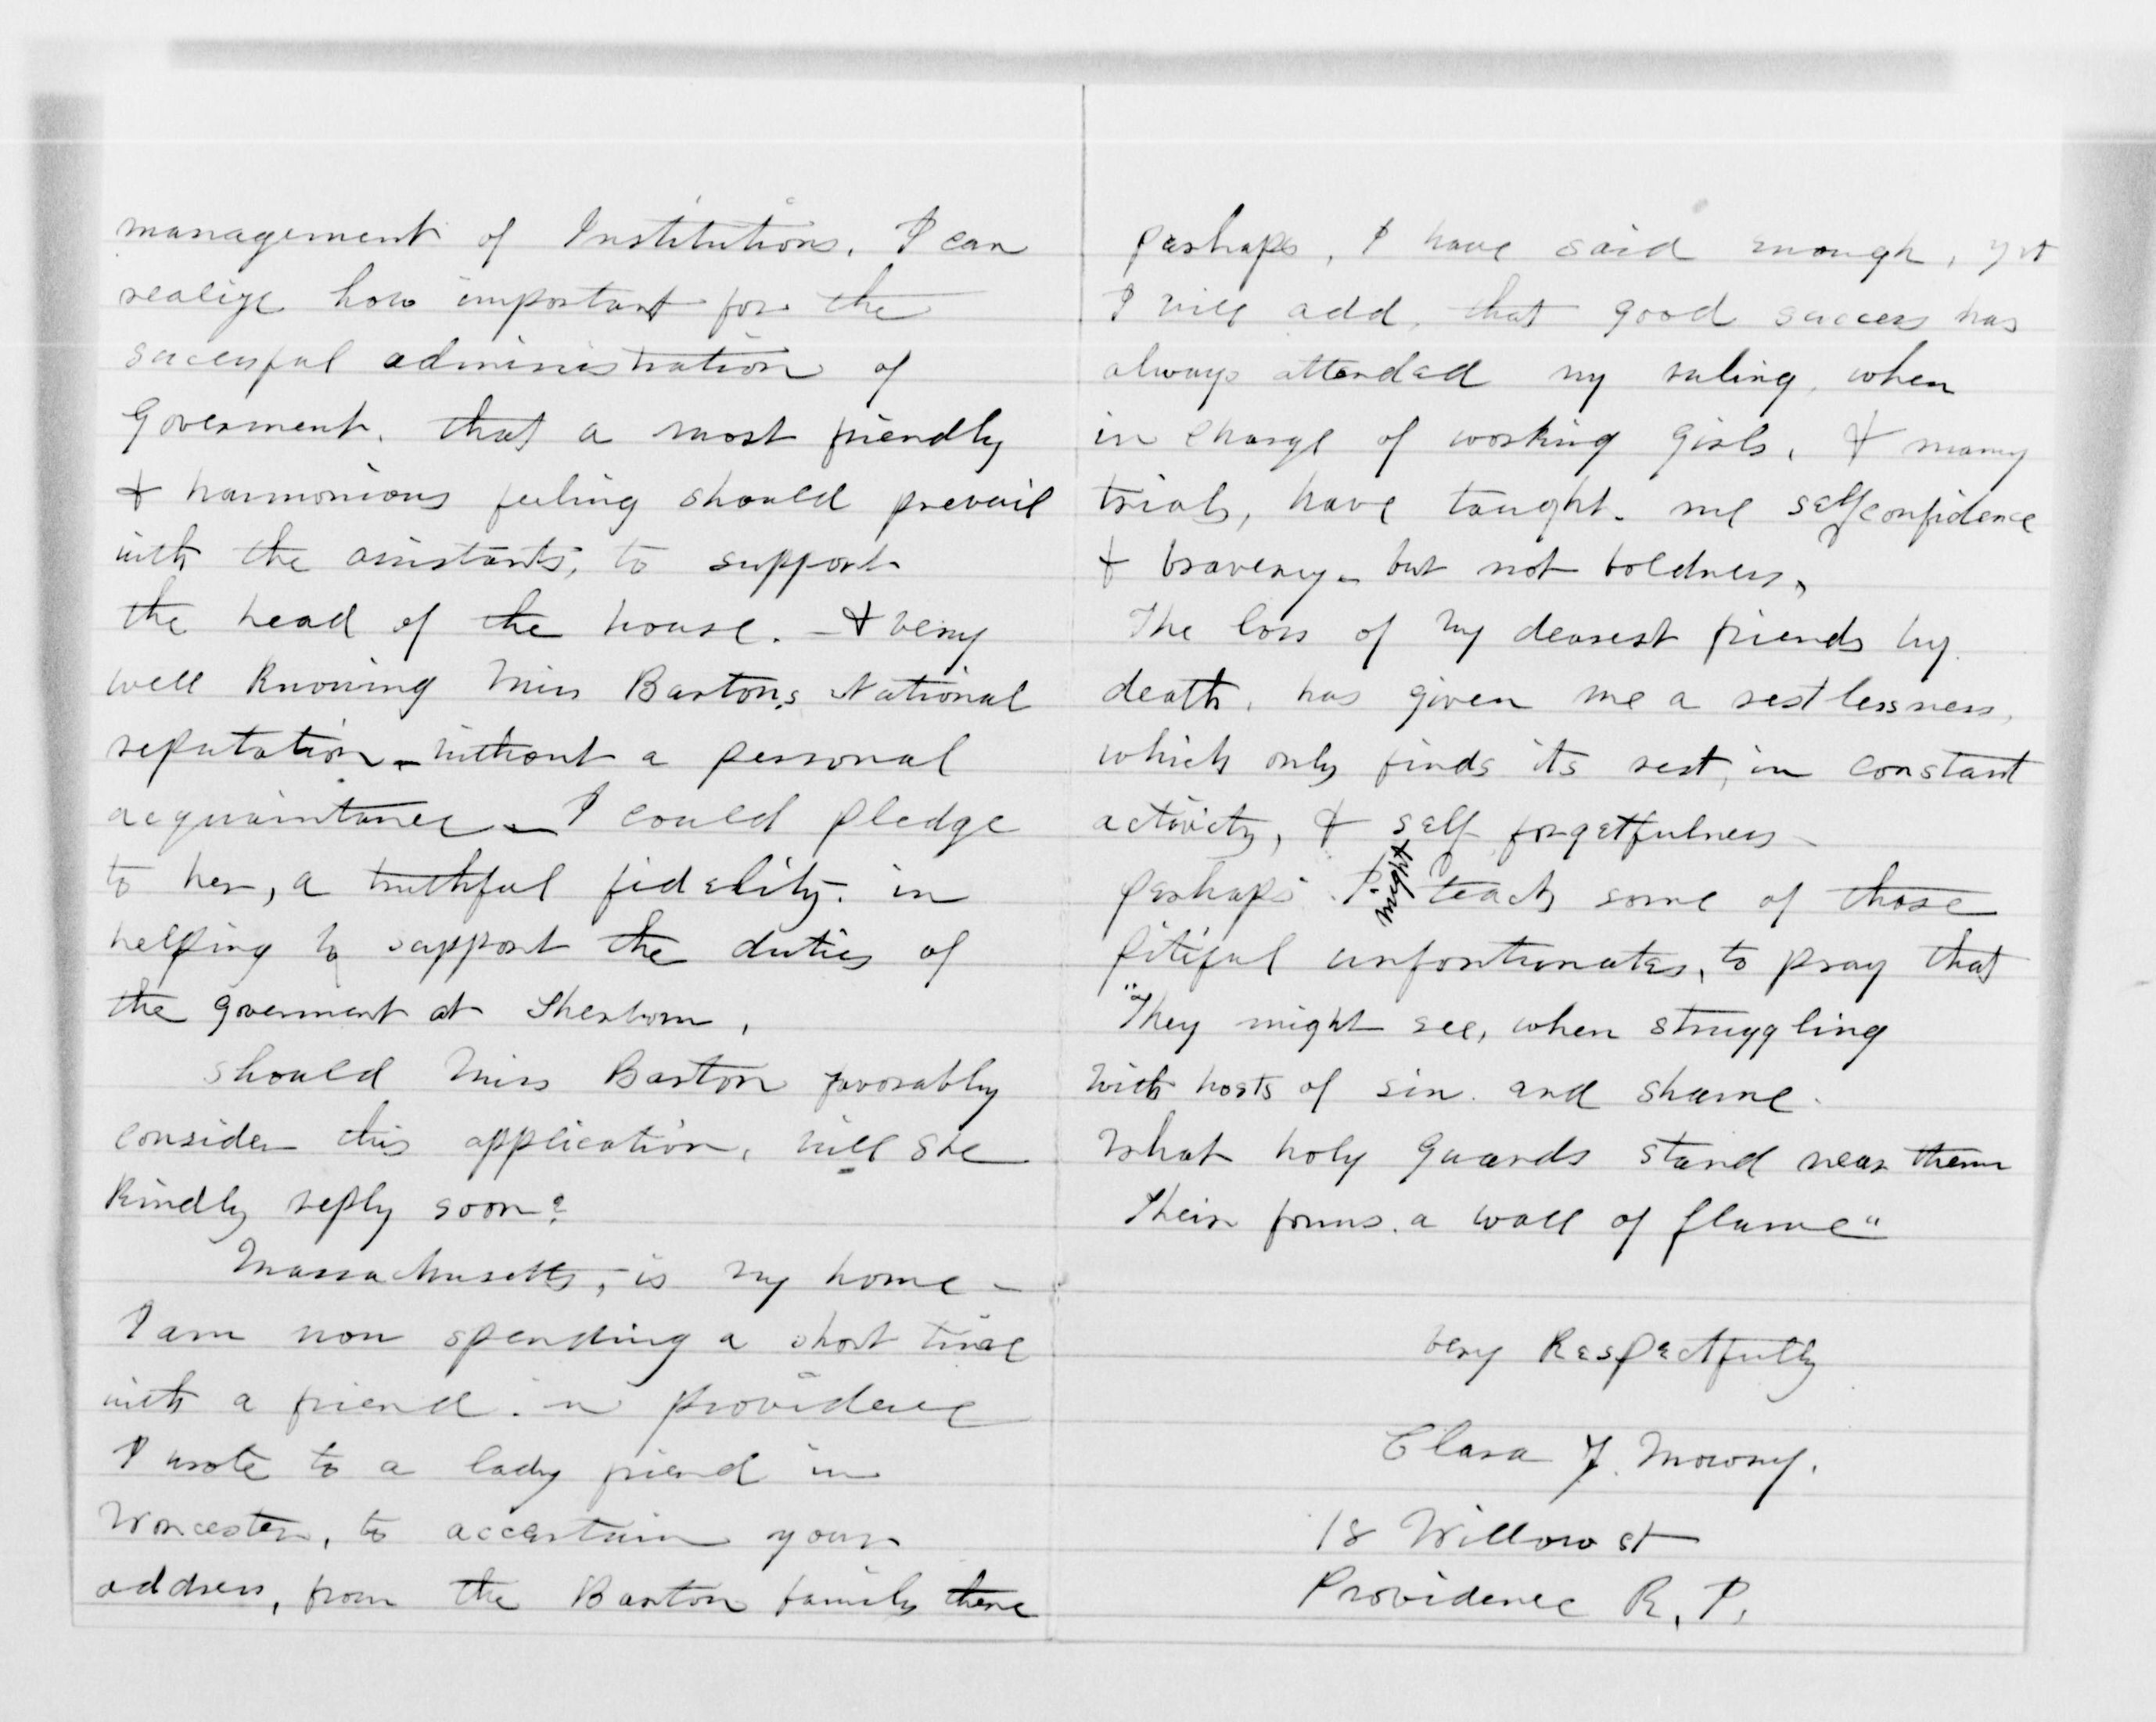 management of Institutions. I can
realize how important for the
sucessful administration of
Goverment. that a most friendly
& harmonious feeling should prevail
with the assistants, to support
the head of the house. - & very
well Knowing Miss Bartons National
reputation - without a personal
acquaintance - I could pledge
to her, a truthful fidelity. in
helping to support the duties of
the goverment at Sherborn,
should Miss Barton favorably
consider this application, will she
Kindly reply soon?
Massachusetts, is my home -
I am now spending a short time
with a friend in providence
I wrote to a lady friend in
Worcester, to accertain your
address, from the Barton family there
perhaps, I have said enough, yet
I will add, that good success has
always attended my ruling, when
in charge of working girls, & many
trials, have taught me selfconfidence
& bravery - but not boldness,
The loss of my dearest friends by
death, has given me a restlessness,
which only finds its rest, in constant
activity, & self forgetfulness -
perhaps I might teach some of those
pitiful unfortunates, to pray that
"They might see, when struggling
with hosts of sin and shame.
What holy guards stand near them
Their forms. a wall of flame"
Very Respectfully
Clara J. Mowry.
18 Willow st
Providence R. I.